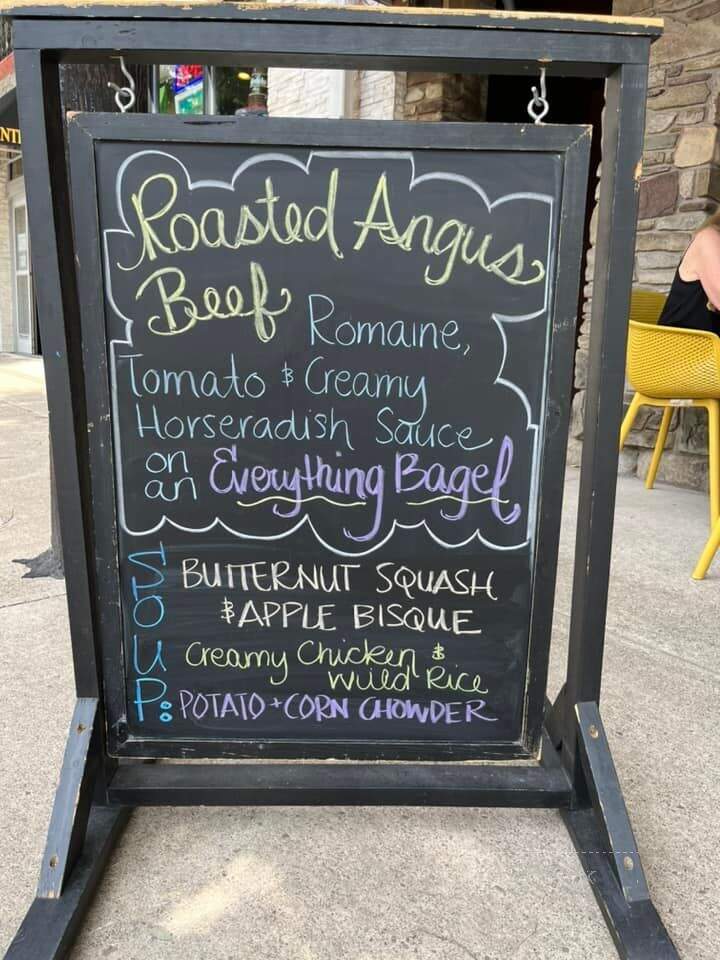 NT
Roasted Angus
Beef Romaine,
Tomato & Creamy
Horseradish Sauce
on
an Everything Bagel
SOUP:
BUTTERNUT SQUASH
& APPLE BISQUE
Creamy Chicken &
Wild Rice
POTATO + CORN CHOWDER